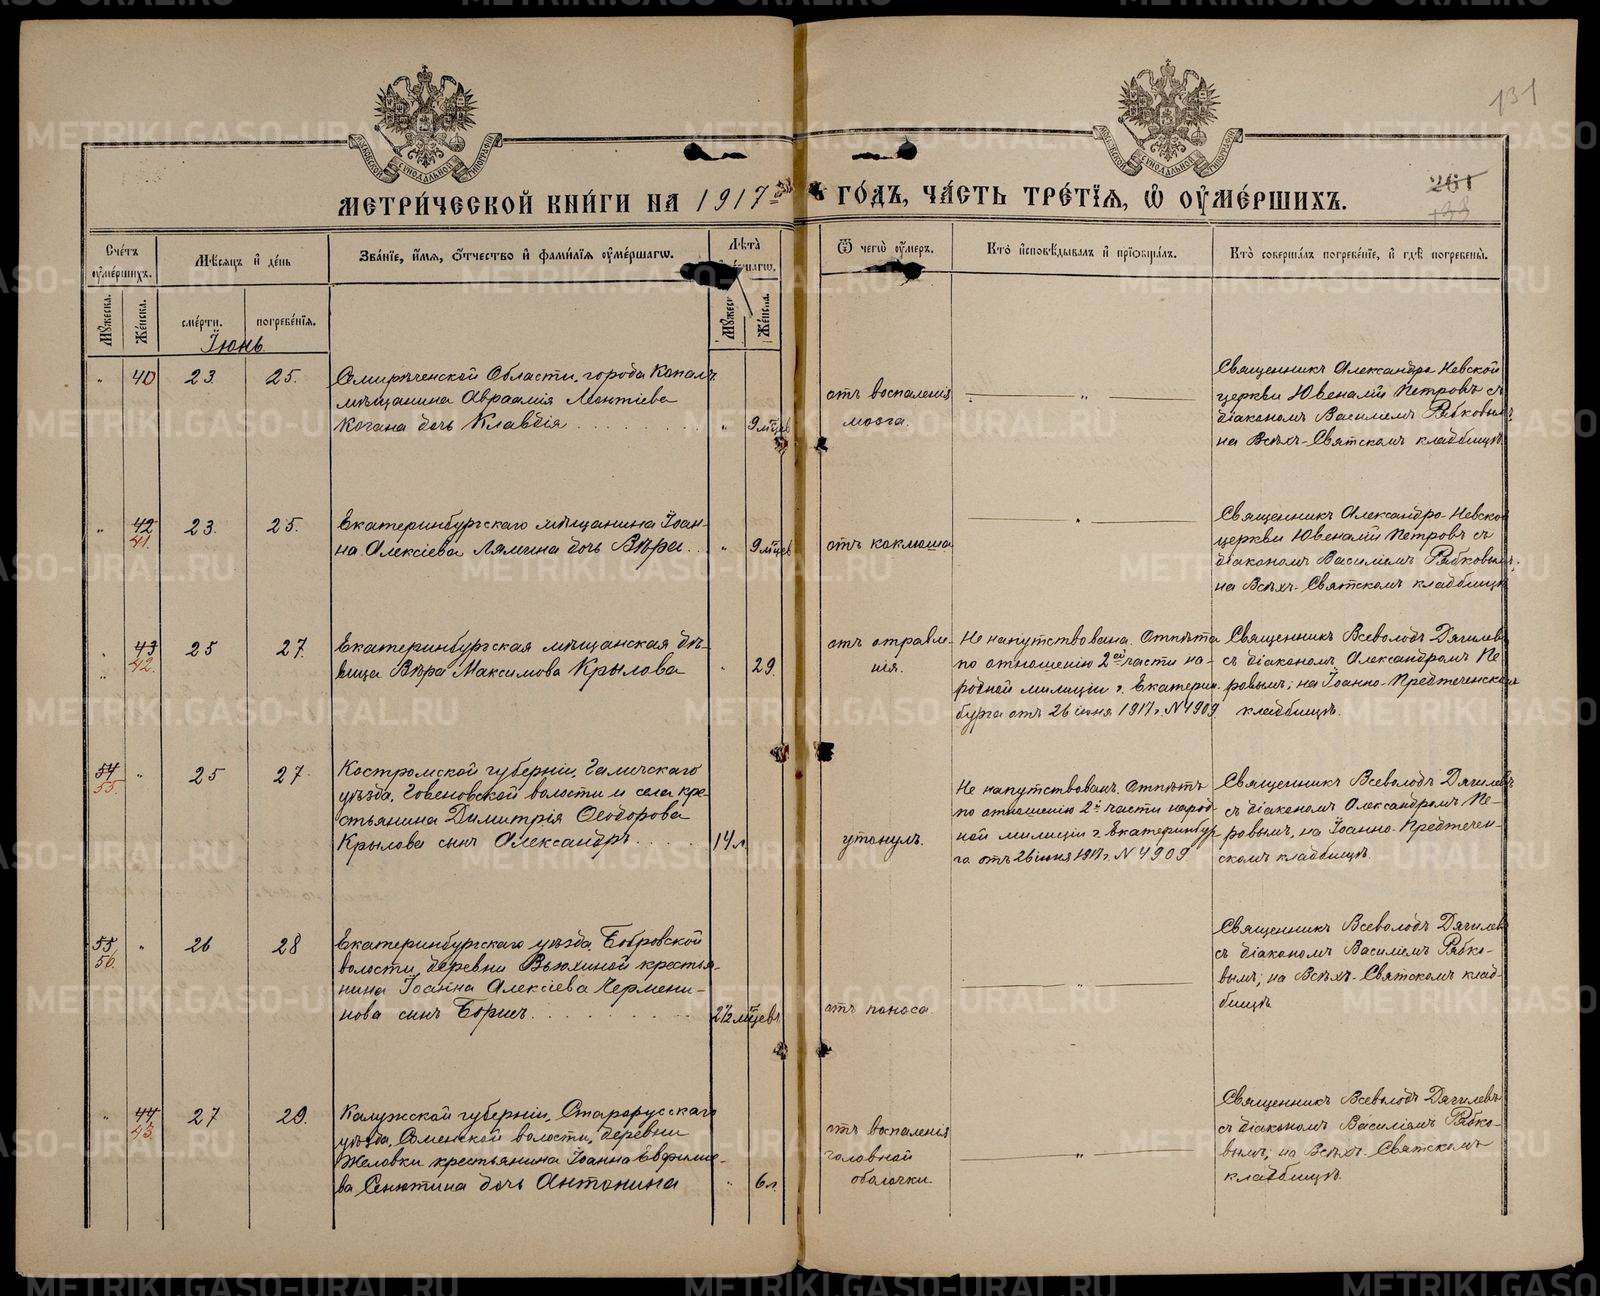 131
МЕТРИ́ЧЕСКОЙ КНИ́ГИ НА 1917 ГО́ДЪ, ЧА́СТЬ ТРЕ́ТЇѦ, Ѡ҆ ОУ҆МЕ́РШИХЪ.
Сче́тъ оу҆ме́ршихъ.
Мѣ́сѧцъ и҆ де́нь
Зва́нїе, и҆́мѧ, ѻ҆́тчество и҆ фами́лїѧ оу҆ме́ршагѡ.
Лѣ́та
Ѿ чегѡ̀ оу҆́меръ.
Кто̀ и҆сповѣ́дывалъ и҆ прїѡбща́лъ.
Кто̀ соверша́лъ погребе́нїе, и҆ гдѣ̀ погребены̀.
Мꙋ́жеска.
Же́нска.
сме́рти.
погребе́нїѧ.
Мꙋ́жеск
Же́нска.
Іюнь
" 40 23. 25.
Семирѣченской Области, города Копалъ
мѣщанина Авраамія Леонтіева
Когана дочь Клавдія
" 9 мцев
отъ воспаленія
мозга.
"
Священникъ Александро-Невской
церкви Ювеналій Петровъ съ
діакономъ Василіемъ Рябковымъ,
на Всѣхъ-Святскомъ кладбищѣ.
" 42 41. 23. 25.
Екатеринбургскаго мѣщанина Іоан-
на Алексіева Лямина дочь Вѣра
" 9 мцев
отъ коклюша
"
Священникъ Александро-Невской
церкви Ювеналій Петровъ съ
діакономъ Василіемъ Рябковымъ,
на Всѣхъ-Святскомъ кладбищѣ
" 43 42. 25 27.
Екатеринбургская мѣщанская дѣ-
вица Вѣра Максимова Крылова
" 29.
отъ отравле-
нія.
Не напутствована. Отпѣта
по отношенію 2ой части на-
родной милиціи г. Екатерин-
бурга отъ 26 іюня 1917 г. N 4909
Священникъ Всеволодъ Дягилевъ
съ діакономъ Александромъ Пе-
ровымъ; на Іоанно-Предтеченскомъ
кладбищѣ.
54 55. " 25 27.
Костромской губерніи, Галичскаго
уѣзда, Говеновской волости и села кре-
стьянина Димитрія Ѳеодорова
Крылова сынъ Александръ
14 л.
утонулъ.
Не напутствованъ. Отпѣтъ
по отношенію 2й части народ-
ной милиціи г. Екатеринбур-
га отъ 26 іюня 1917 г. N 4909
Священникъ Всеволодъ Дягилевъ
съ діакономъ Александромъ Пе-
ровымъ, на Іоанно-Предтечен-
скомъ кладбищѣ.
55 56. " 26 28
Екатеринбургскаго уѣзда, Бобровской
волости, деревни Вьюхиной крестья-
нина Іоанна Алексіева Чермени-
нова сынъ Борисъ
2 1/2 мцевъ
отъ поноса.
"
Священникъ Всеволодъ Дягилевъ
съ діакономъ Василіемъ Рябко-
вымъ; на Всѣхъ-Святскомъ клад-
бищѣ.
" 44 43. 27 29.
Калужской губерніи, Старорусскаго
уѣзда, волости, деревни
Желовки крестьянина Іоанна Евфиміе-
ва Сенютина дочь Антонина
" 6 л.
отъ воспаленія
головной
оболочки.
"
Священникъ Всеволодъ Дягилевъ
съ діакономъ Василіемъ Рябко-
вымъ; на Всѣхъ-Святскомъ
кладбищѣ.
METRIKI.GASO-URAL.RU